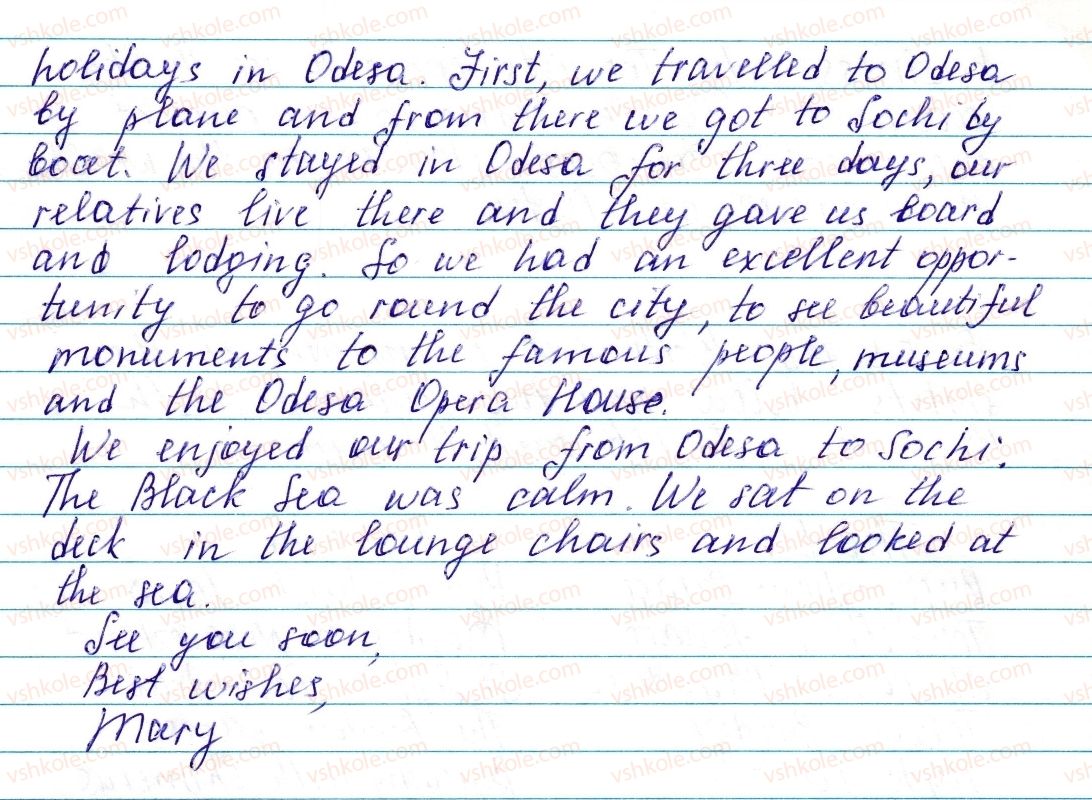 holidays in Odesa. First, we travelled to Odesa
by plane and from there we got to Sochi by
boat. We stayed in Odesa for three days, our
relatives live there and they gave us board
and lodging. So we had an excellent oppor-
tunity to go round the city, to see beautiful
monuments to the famous people, museums
and the Odesa Opera House.
We enjoyed our trip from Odesa to Sochi.
The Black Sea was calm. We sat on the
deck in the lounge chairs and looked at
the sea.
See you soon,
Best wishes,
Mary
vshkole.com